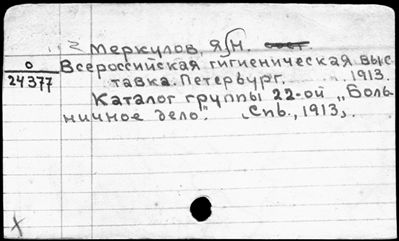 Меркулов, Я.Н. сост.
О
24377
Всероссийская гигиеническая выс-
тавка. Петербург. 1913.
Каталог группы 22-ой „Боль-
ничное дело". Спб., 1913.